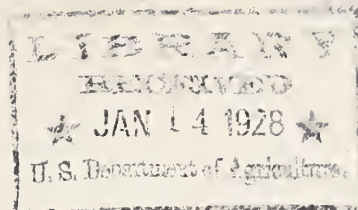 LIBRARY
RECEIVED
★ JAN 14 1928 ★
U. S. Department of Agriculture.